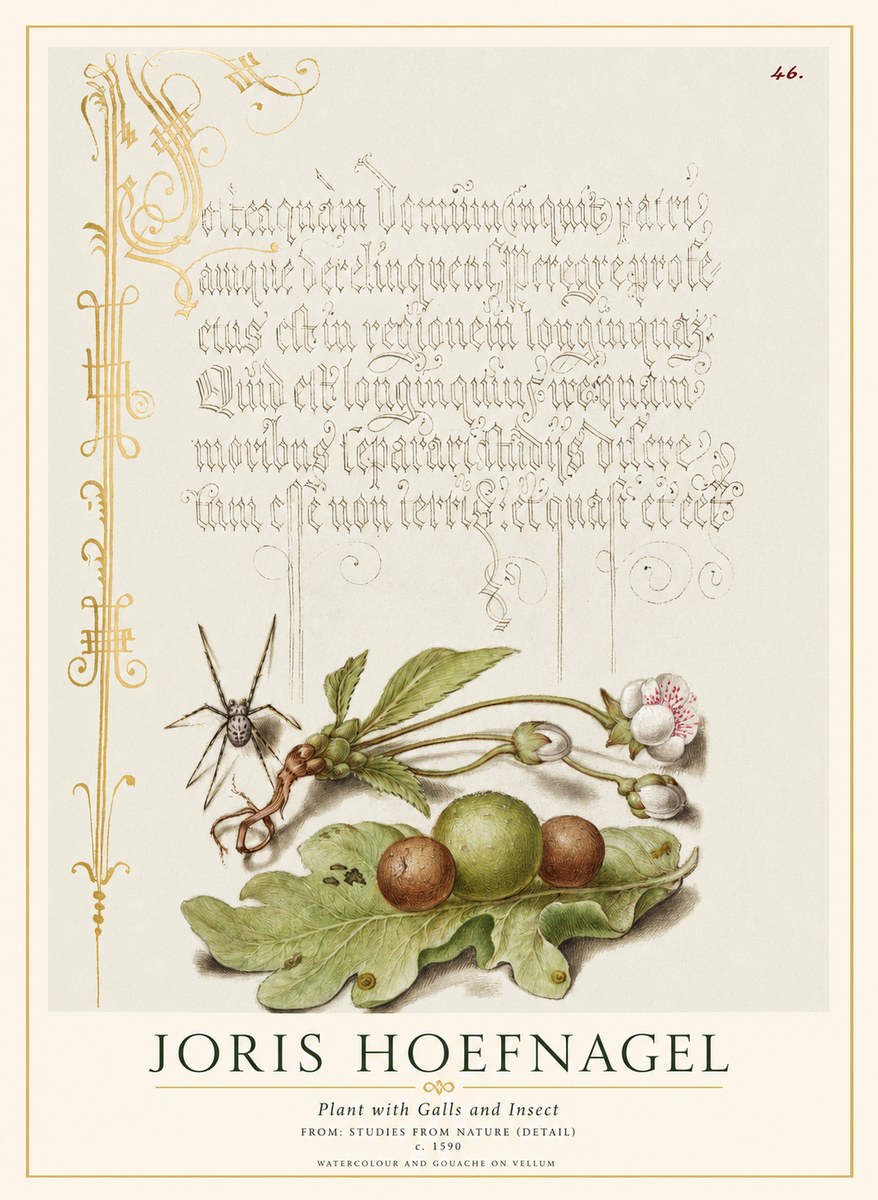 46.
est eaquàm Dominum (inquit) patri,
amque derelinquens, Peregre profe-
ctus est in regionem longinquaz.
Quid est longinquius, quàm
moribus separari, studijs discre
tum esse non terris: et quasi et
JORIS HOEFNAGEL
Plant with Galls and Insect
FROM: STUDIES FROM NATURE (DETAIL)
c. 1590
WATERCOLOUR AND GOUACHE ON VELLUM